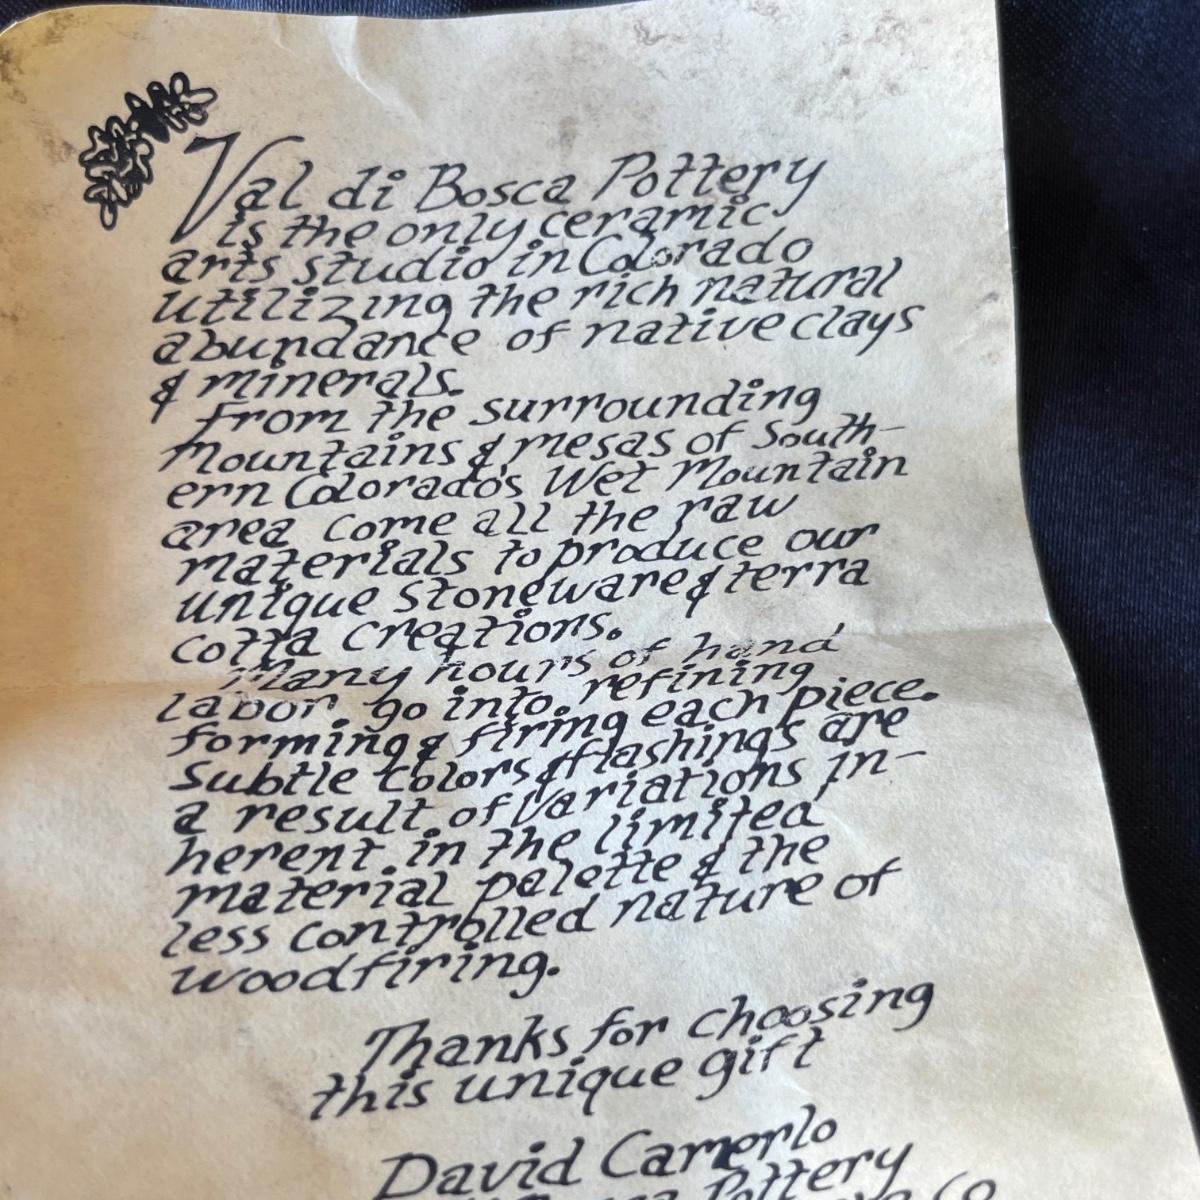 Val di Bosca Pottery
is the only ceramic
arts studio in Colorado
utilizing the rich natural
abundance of native clays
& minerals.
From the surrounding
Mountains & mesas of South-
ern Colorado's Wet Mountain
area come all the raw
materials to produce our
unique stoneware & terra
cotta creations.
Many hours of hand
labor go into refining
forming & firing each piece.
Subtle colors & flashings are
a result of variations in-
herent in the limited
material palette & the
less controlled nature of
woodfiring.
Thanks for choosing
this unique gift
David Camerlo
Pottery